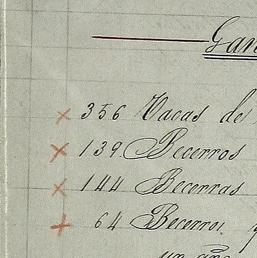 Gan
356 Vacas de
139 Becerros
144 Becerras
64 Becerros.
un año